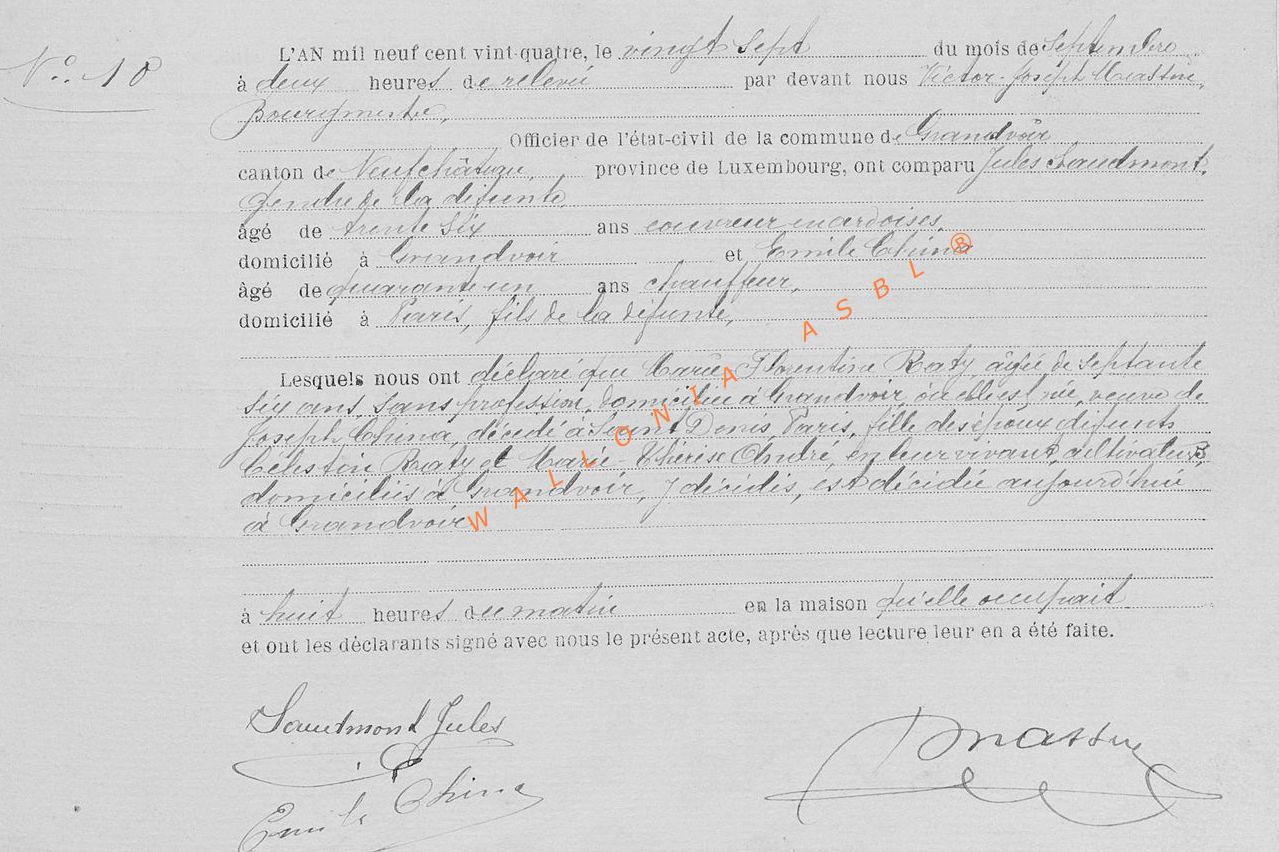 N° 10
L'AN mil neuf cent vint-quatre, le vingt sept du mois de Septembre
à deux heures de relevée par devant nous Victor-Joseph Massin,
Bourgmestre,
Officier de l'état-civil de la commune de Grandvoir
canton de Neufchâteau, province de Luxembourg, ont comparu Jules Saudmont,
gendre de la défunte,
âgé de trente six ans couvreur en ardoises,
domicilié à Grandvoir et Emile China
âgé de quarante un ans chauffeur,
domicilié à Paris, fils de la défunte,
Lesquels nous ont déclaré que Marie Florentine Raty, âgée de septante
six ans, sans profession, domiciliée à Grandvoir, où elle est née, veuve de
Joseph China, décédé à Saint Denis, Paris, fille des époux défunts
Célestin Raty et Marie-Thérèse André, en leur vivant, cultivateurs,
domiciliés à Grandvoir, y décédés, est décédée aujourd'hui
à Grandvoir
à huit heures du matin en la maison qu'elle occupait
et ont les déclarants signé avec nous le présent acte, après que lecture leur en a été faite.
Saudmont Jules
Emile China
WALLONIA ASBL ®